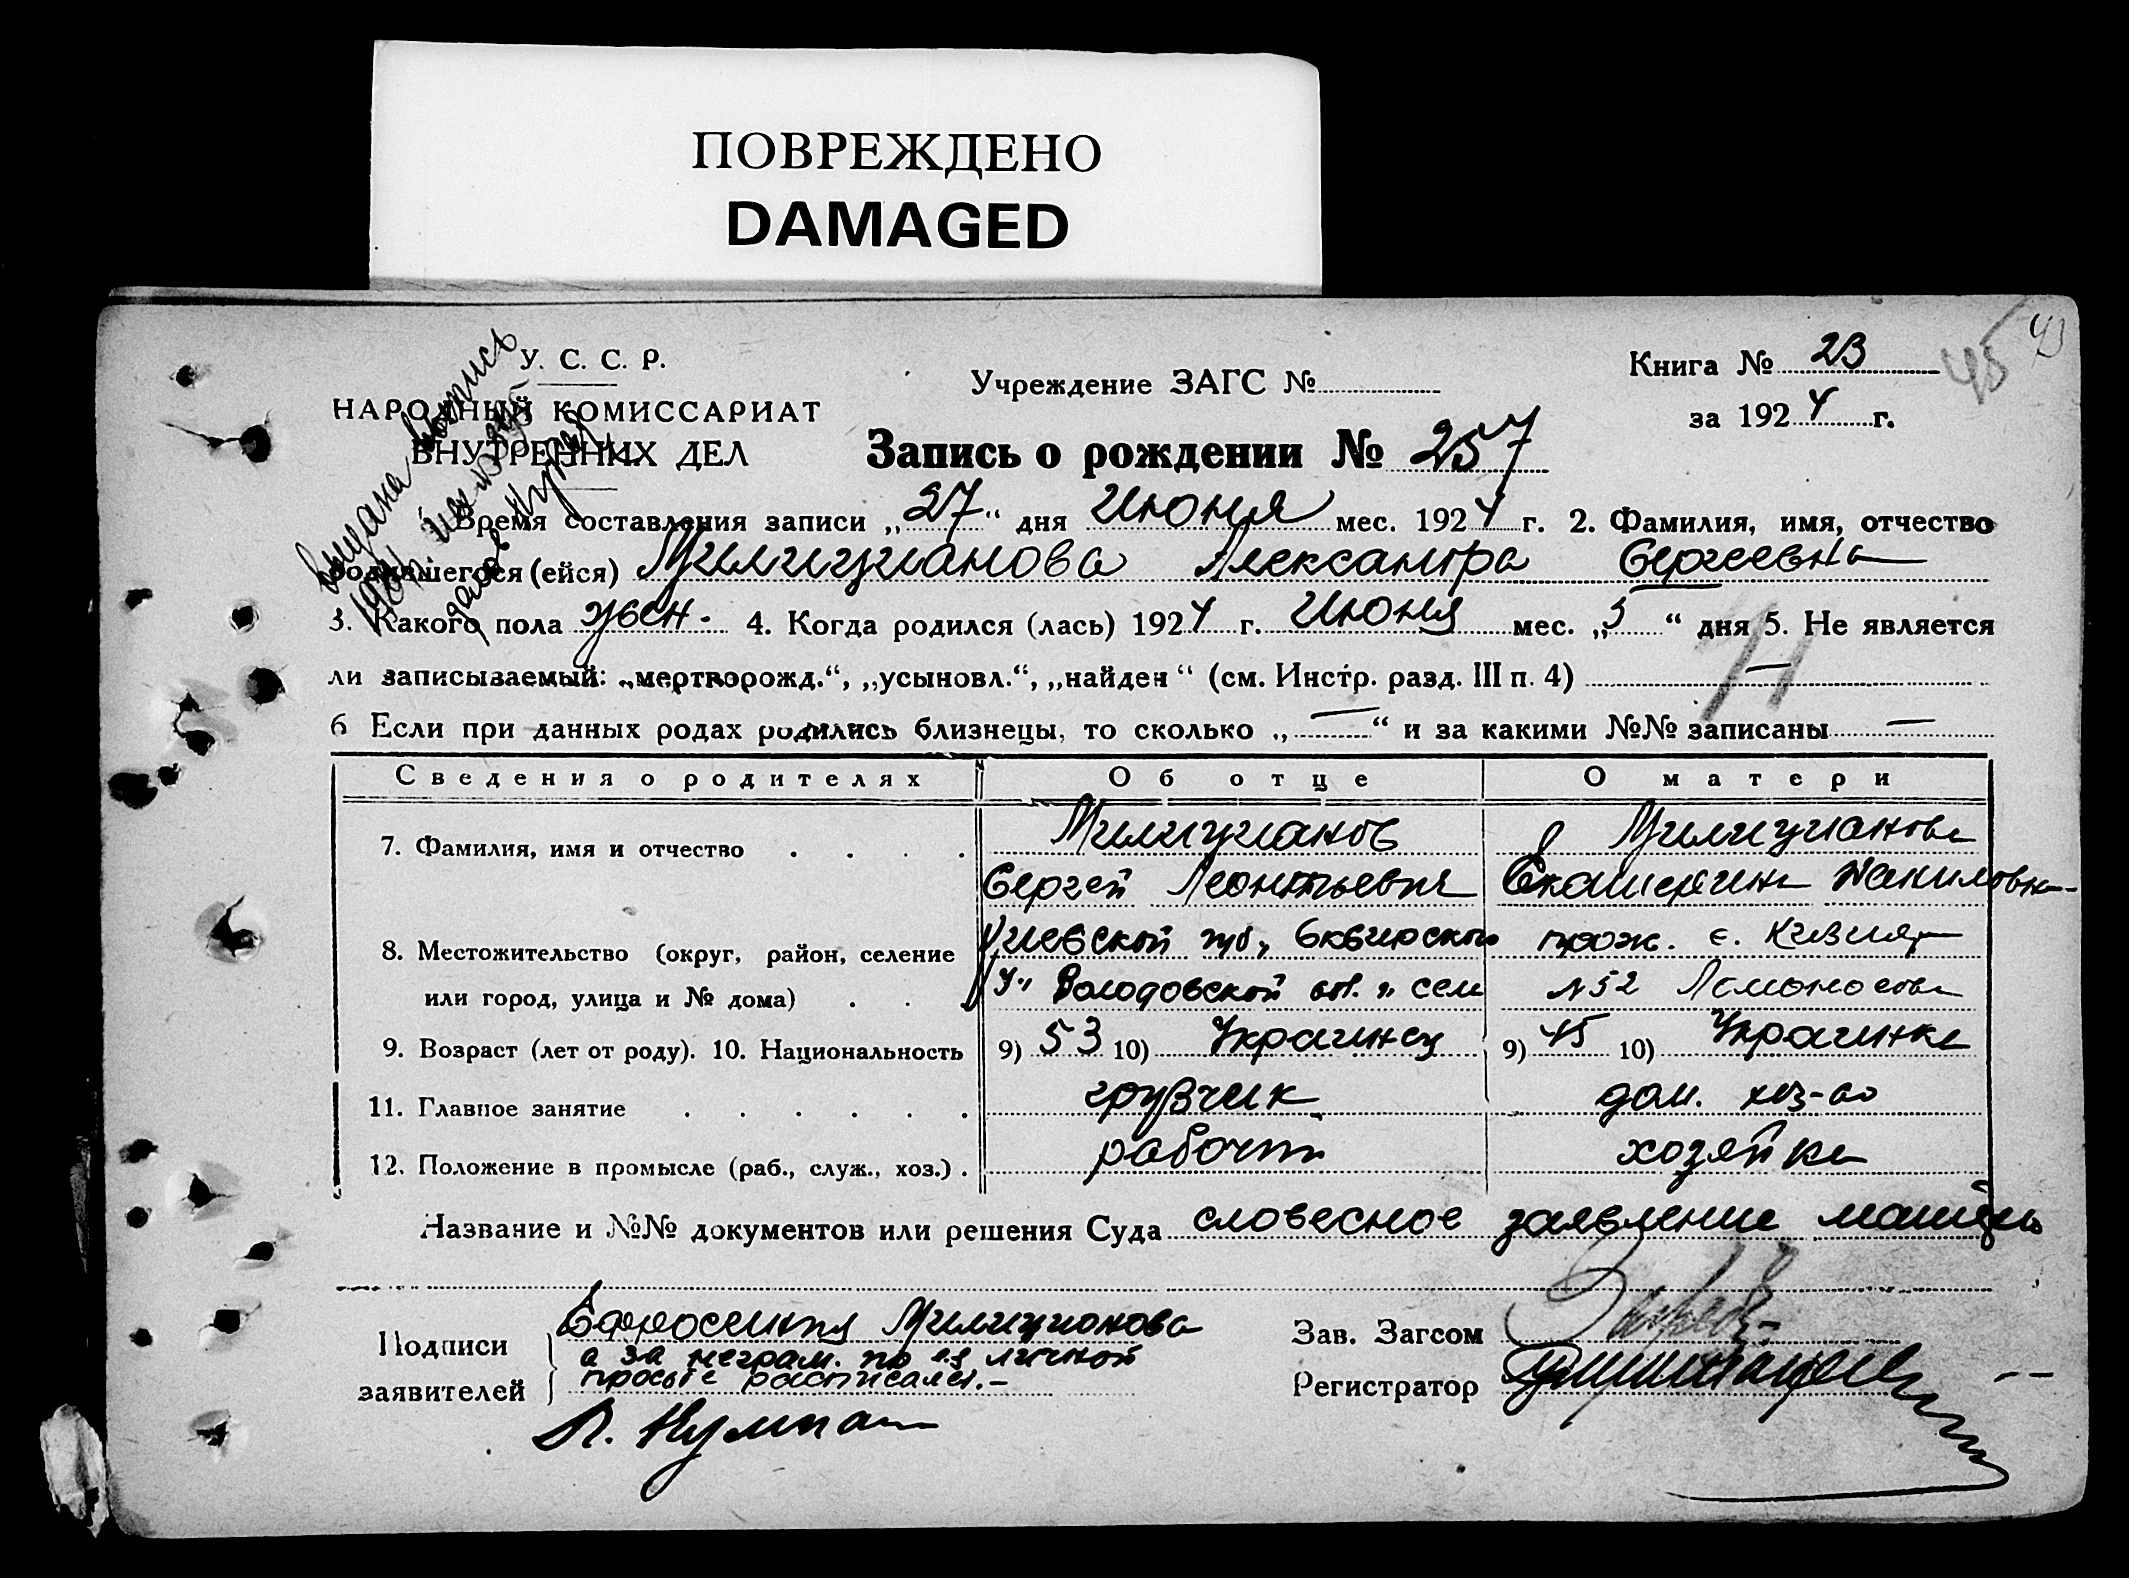 ПОВРЕЖДЕНО
DAMAGED
45 43
У. С. С. Р.
НАРОДНЫЙ КОМИССАРИАТ
ВНУТРЕННИХ ДЕЛ
выдана выпись
Учреждение ЗАГС №
Книга № 23
за 1924 г.
Запись о рождении № 257
Время составления записи „27“ дня Июня мес. 1924 г. 2. Фамилия, имя, отчество
родившегося (ейся) Милицианова Александра Сергеевна
3. Какого пола жен. 4. Когда родился (лась) 1924 г. Июня мес. „5“ дня 5. Не является
ли записываемый: „мертворожд.“, „усыновл.“, „найден“ (см. Инстр. разд. III п. 4) —
71
6 Если при данных родах родились близнецы, то сколько „—“ и за какими №№ записаны —
Сведения о родителях Об отце О матери
7. Фамилия, имя и отчество . . . . Милицианов Милицианова
Сергей Леонтьевич Екатерина Даниловна
8. Местожительство (округ, район, селение Киевской губ, Сквирского прож. с.
или город, улица и № дома) . . у" Володовской вол. " села № 52 Ломоносова
9. Возраст (лет от роду). 10. Национальность 9) 53 10) Украинец 9) 45 10) Украинка
11. Главное занятие . . . . . . грузчик дом. хоз-во
12. Положение в промысле (раб., служ., хоз.) . рабочий хозяйка
Название и №№ документов или решения Суда словесное заявление матери
Подписи Ефросиния Милицианова
а за неграм. по ея личной
заявителей просьбе расписался.–
Зав. Загсом
Регистратор